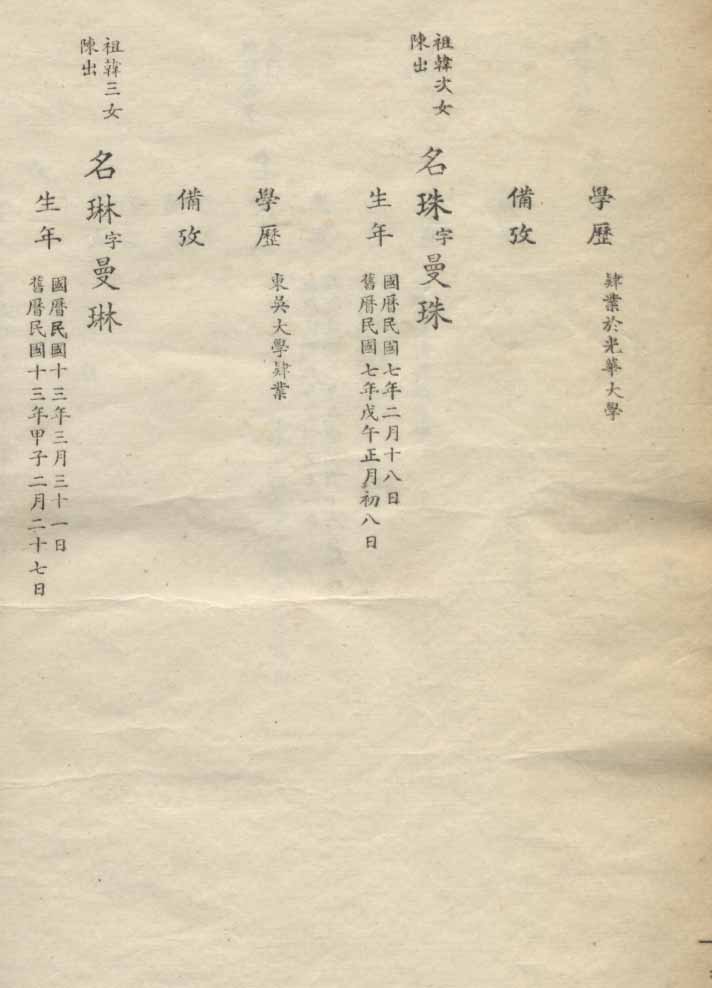 學歷
肄業於光華大學
備攷
祖韓次女
陳出
名珠字曼珠
生年
國曆民國七年二月十八日
舊曆民國七年戊午正月初八日
學歷
東吳大學肄業
備攷
祖韓三女
陳出
名琳字曼琳
生年
國曆民國十三年三月三十一日
舊曆民國十三年甲子二月二十七日